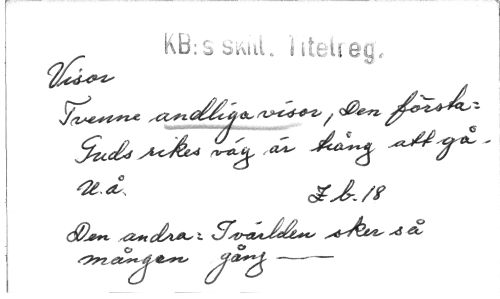 KB:s skill. Titelreg.
Visor
Tvenne andliga visor, Den första=
Guds rikes väg är trång att gå.
U.å. Z b. 18
Den andra= I världen sker så
mången gång —